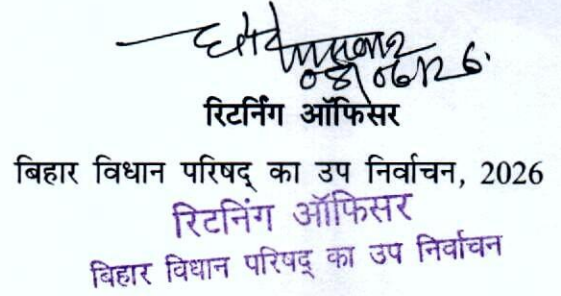 रिटर्निंग ऑफिसर
बिहार विधान परिषद् का उप निर्वाचन, 2026
रिटर्निंग ऑफिसर
बिहार विधान परिषद् का उप निर्वाचन